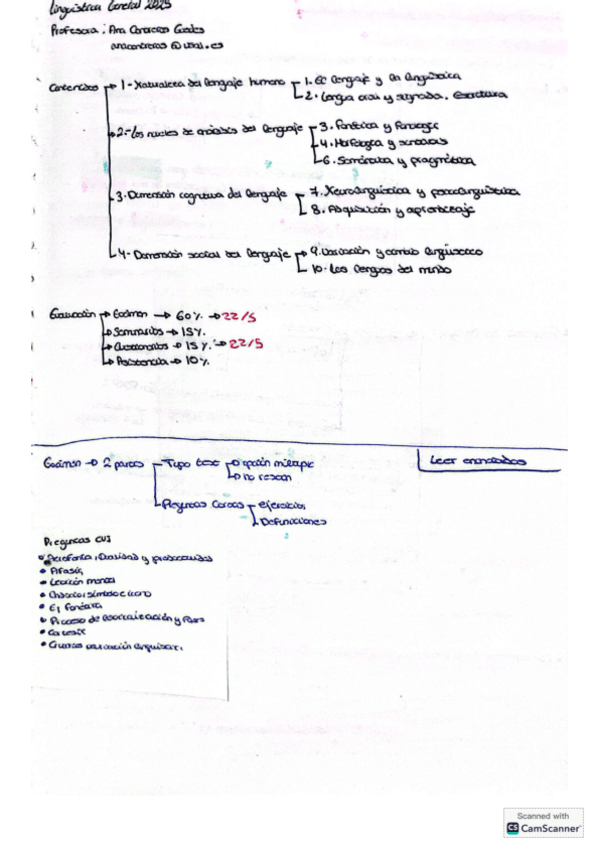 Lingüística General 2025
Profesora: Ana
@usal.es
Contenidos 1- Naturaleza del lenguaje humano 1. El lenguaje y la lingüística
2. Lengua oral y signada. Escritura
2- Los niveles de análisis del lenguaje 3. Fonética y Fonología
4. Morfología y sintaxis
6. Semántica y pragmática
3. Dimensión cognitiva del lenguaje 7. Neurolingüística y psicolingüística
8. Adquisición y aprendizaje
4- Dimensión social del lenguaje 9. Variación y cambio lingüístico
10. Las lenguas del mundo
Evaluación Examen → 60% → 22/5
Seminarios → 15%.
Cuestionarios → 15%. → 22/5
Asistencia → 10%
Examen → 2 partes Tipo test opción múltiple
no restan
Leer enunciados
Preguntas Cortas ejercicios
Definiciones
Preguntas
y
Afasia
Lección
El Fonema
Proceso de y
variación
Scanned with
CS CamScanner